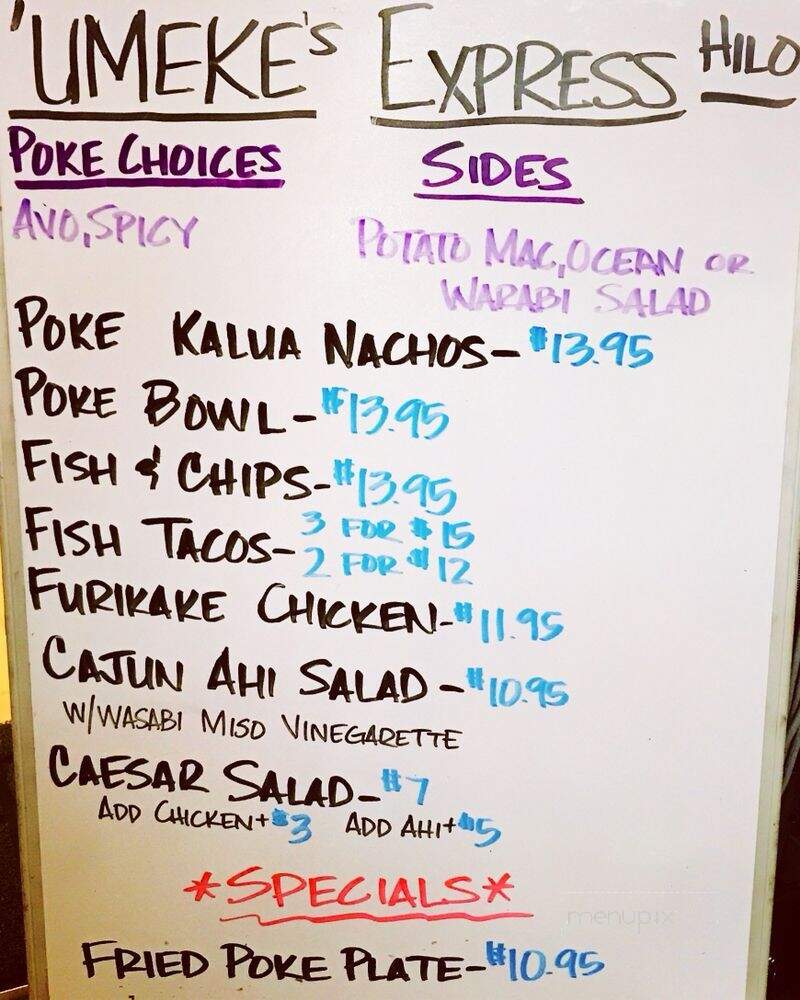 'UMEKE's EXPRESS HILO
POKE CHOICES
AVO, SPICY
SIDES
POTATO MAC, OCEAN OR
WARABI SALAD
POKE KALUA NACHOS - $13.95
POKE BOWL - $13.95
FISH & CHIPS - $13.95
FISH TACOS - 3 FOR $15
2 FOR $12
FURIKAKE CHICKEN - $11.95
CAJUN AHI SALAD - $10.95
W/WASABI MISO VINEGARETTE
CAESAR SALAD - $7
ADD CHICKEN + $3 ADD AHI + $5
*SPECIALS*
menupix
FRIED POKE PLATE - $10.95